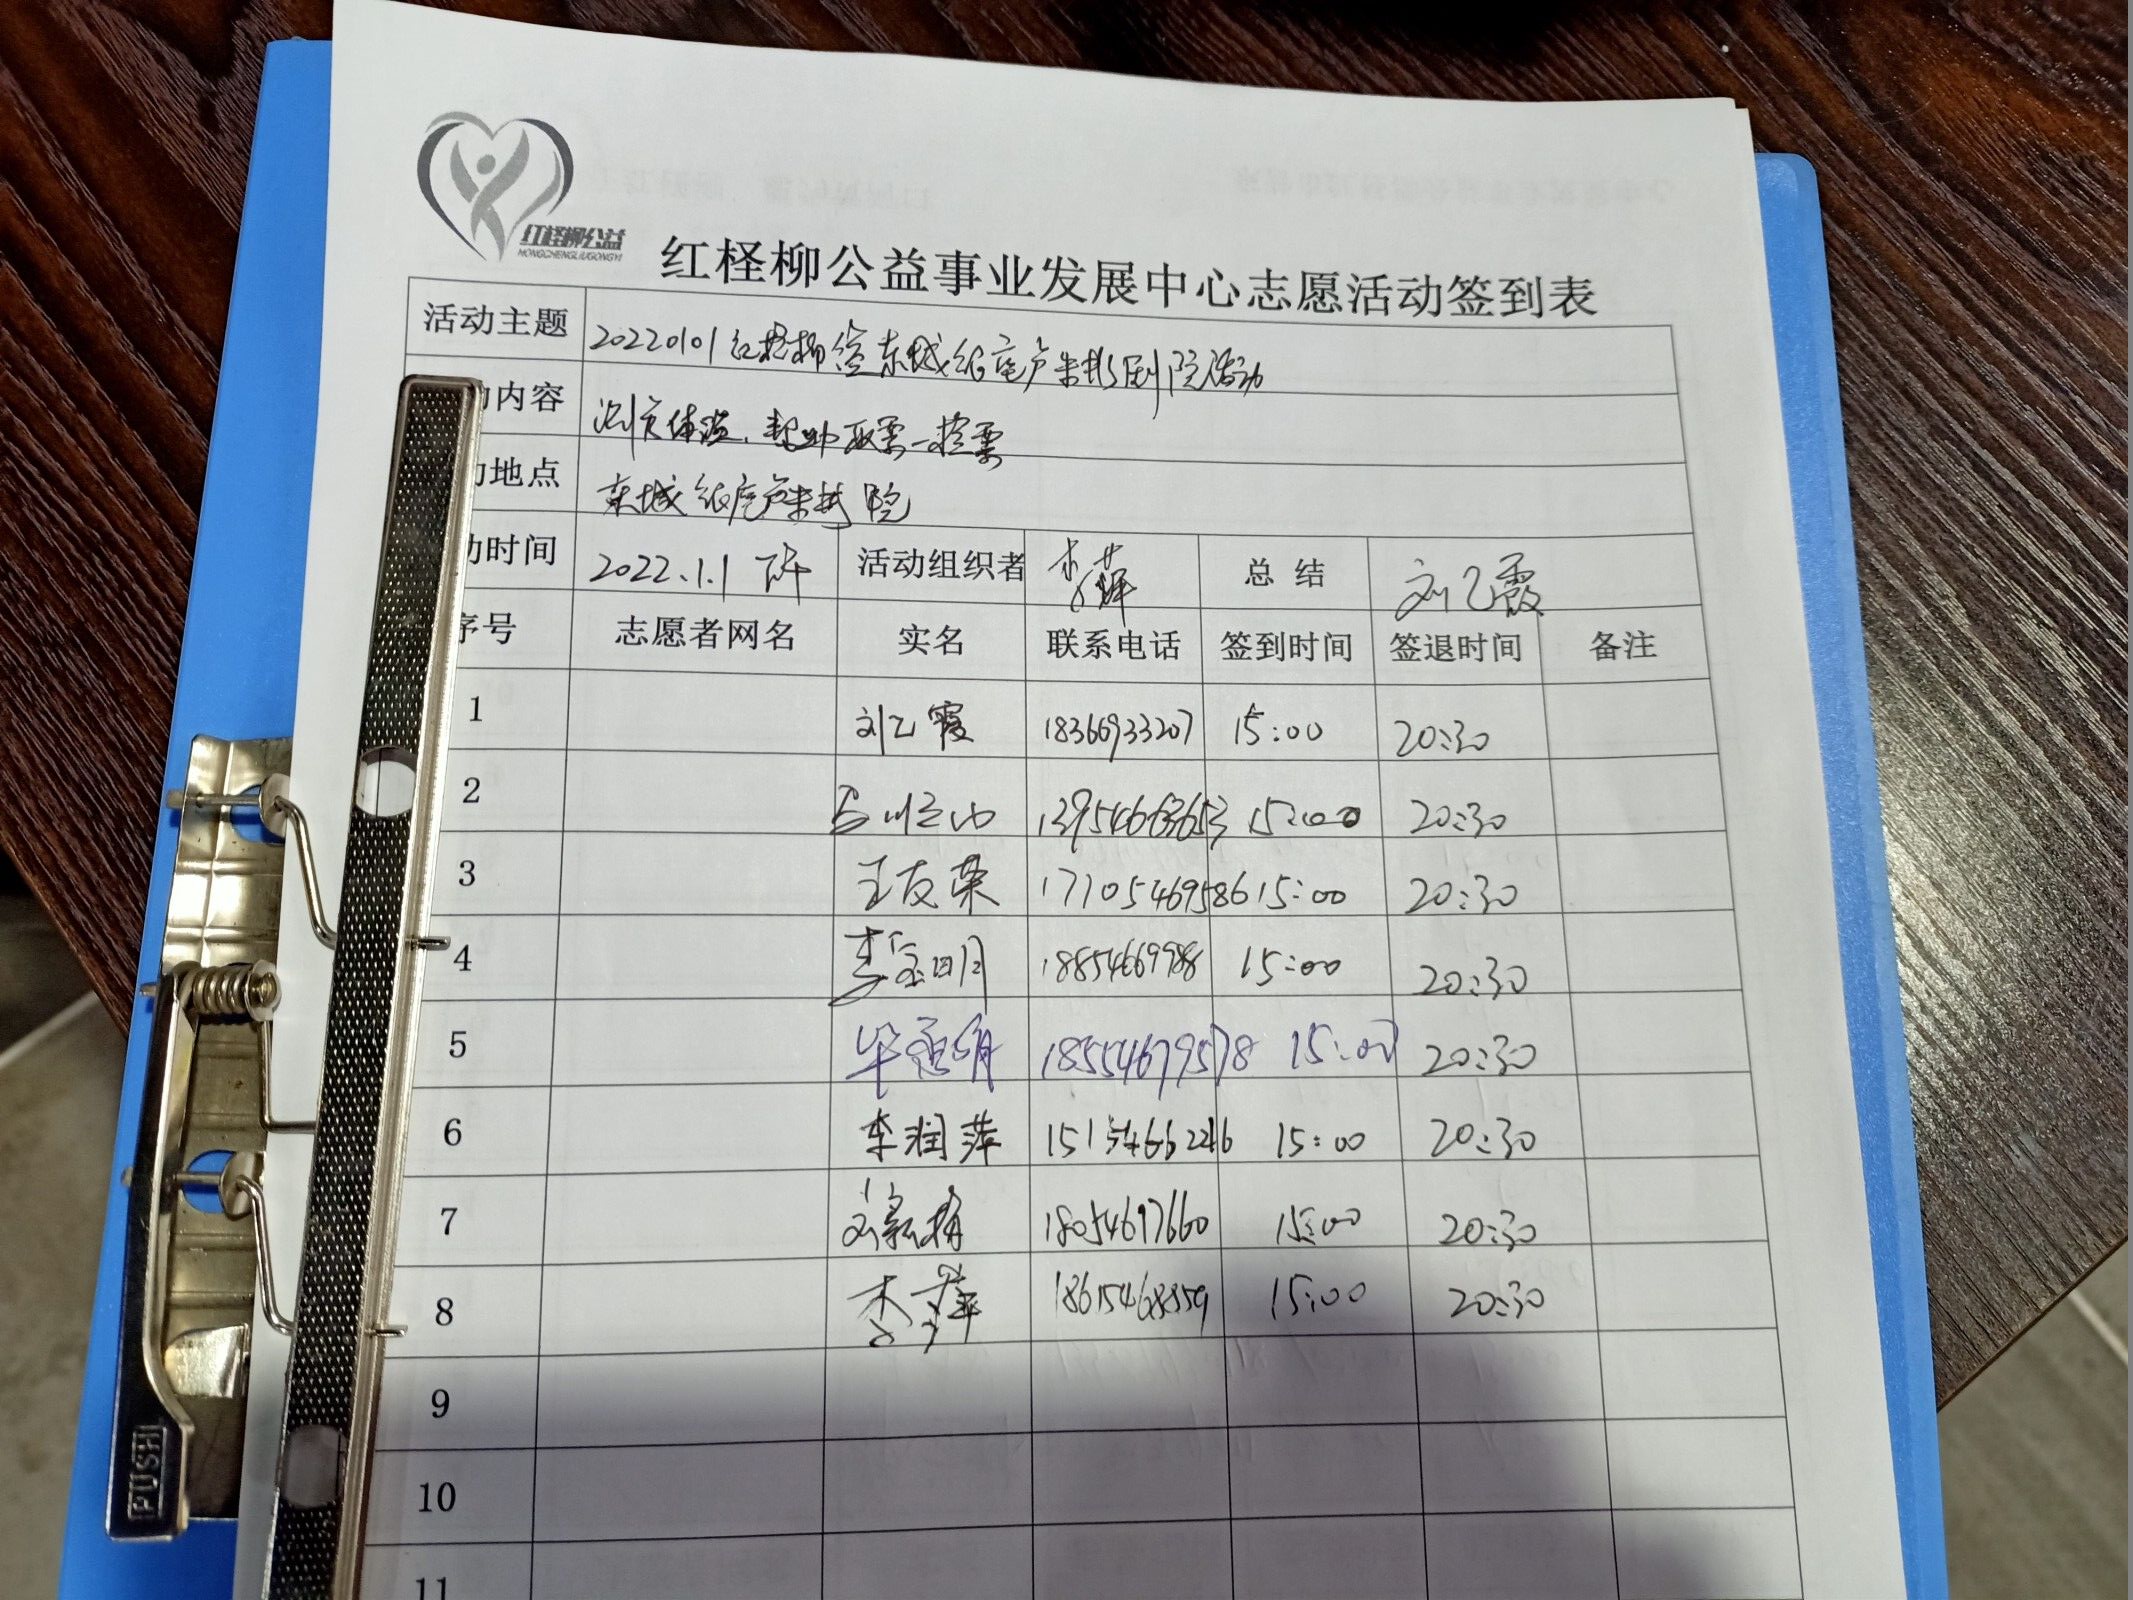 红柽柳公益
HONGCHENGLIUGONGYI
红柽柳公益事业发展中心志愿活动签到表
活动主题 20220101红柽柳 东城 活动
动内容 测 体温、帮助取票、检票
动地点 东城 院
动时间 2022.1.1 下午 活动组织者 李萍 总 结 刘乙霞
序号 志愿者网名 实名 联系电话 签到时间 签退时间 备注
1 刘乙霞 18366933207 15:00 20:30
2 13954663653 15:00 20:30
3 王友荣 17105469586 15:00 20:30
4 李宝明 18854669988 15:00 20:30
5 毕 明 18554679578 15:00 20:30
6 李润萍 15154662216 15:00 20:30
7 18054697660 15:00 20:30
8 李萍 18615468559 15:00 20:30
9
10
11
PUSH